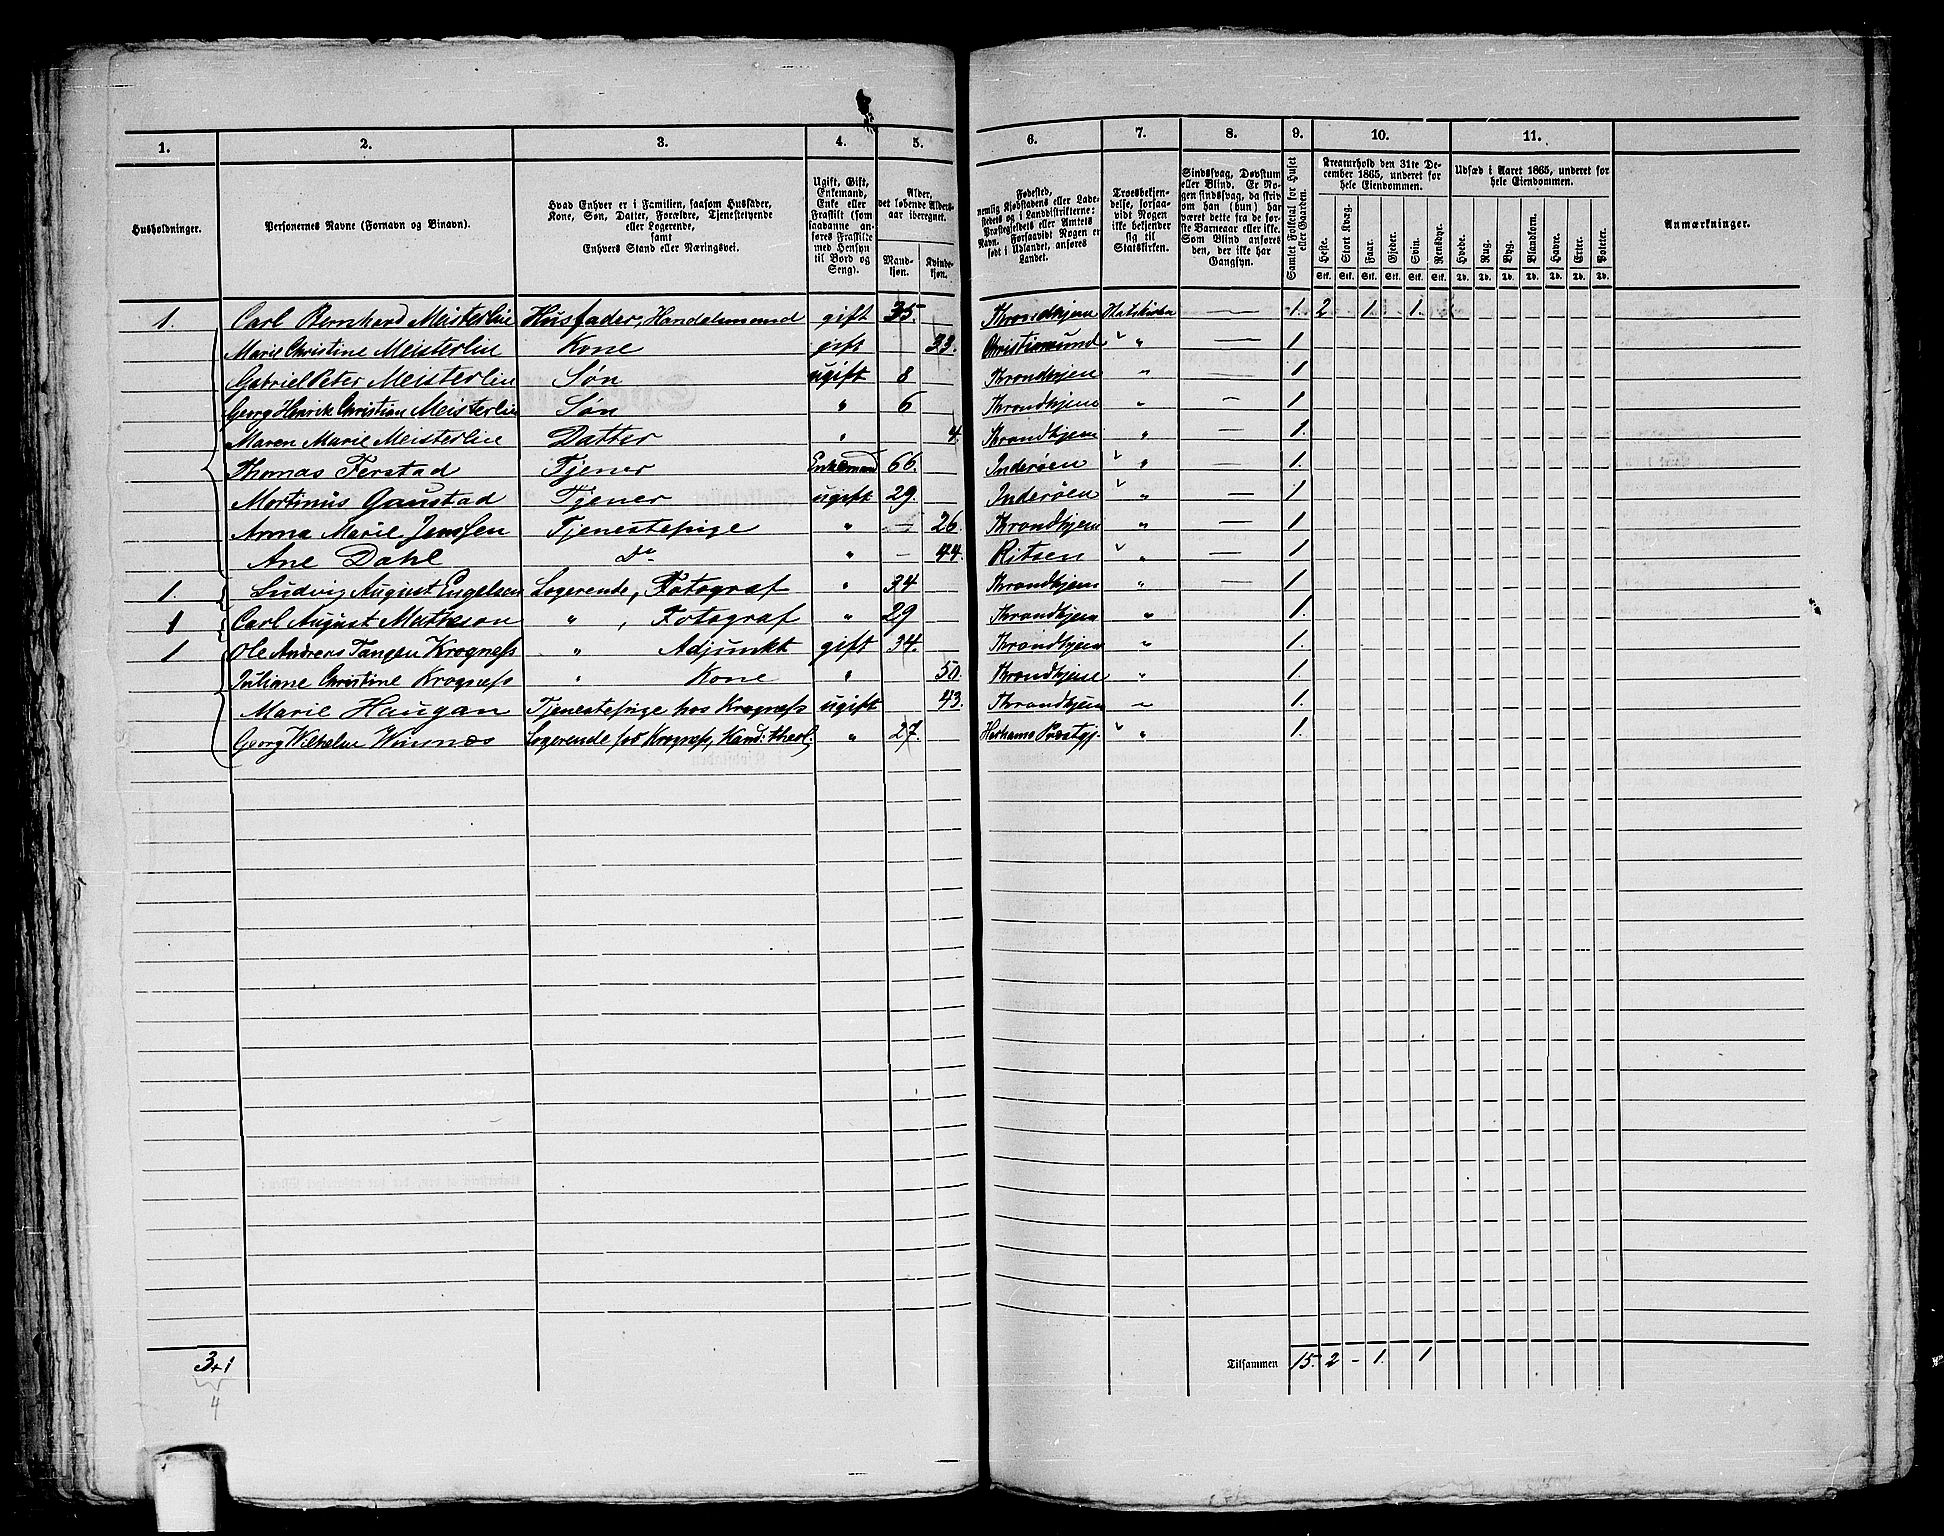 1. 2. 3. 4. 5. 6. 7. 8. 9. 10. 11.
Husholdninger.
Personernes Navne (Fornavn og Binavn).
Hvad Enhver er i Familien, saasom Husfader,
Kone, Søn, Datter, Forældre, Tjenestetyende
eller Logerende,
samt
Enhvers Stand eller Næringsvei.
Ugift, Gift,
Enkemand,
Enke eller
Fraskilt (som
saadanne an-
føres Fraskilte
med Hensyn
til Bord og
Seng).
Alder,
det løbende Alders-
aar iberegnet.
Mand-
kjøn.
Kvinde-
kjøn.
Fødested,
nemlig Kjøbstadens eller Lade-
stedets og i Landdistrikterne:
Præstegjeldets eller Amtets
Navn. Forsaavidt Nogen er
født i Udlandet, anføres
Landet.
Troesbekjen-
delse, forsaa-
vidt Nogen
ikke bekjender
sig til
Statskirken.
Sindssvag, Døvstum
eller Blind. Er No-
gen sindssvag, da skriv
om han (hun) har
været dette fra de før-
ste Barneaar eller ikke.
Som Blind anføres
den, der ikke har
Gangsyn.
Samlet Folketal for Huset
eller Gaarden.
Kreaturhold den 31te De-
cember 1865, underet for
hele Eiendommen.
Heste. Stort Kvæg. Faar. Gjeder. Svin. Rensdyr.
Stk. Stk. Stk. Stk. Stk. Stk.
Udsæd i Aaret 1865, underet for
hele Eiendommen.
Hvede. Rug. Byg. Blandkorn. Havre. Erter. Poteter.
Td. Td. Td. Td. Td. Td. Td.
Anmærkninger.
1. Carl Bernhard Meisterlin Husfader, Handelsmand gift 35. Throndhjem Statskirken — 1. 2 1. 1.
Marie Christine Meisterlin Kone gift 33. Christiansund " — 1
Gabriel Peter Meisterlin Søn ugift 8 Throndhjem " — 1
Georg Henrik Christian Meisterlin Søn " 6 Throndhjem " — 1.
Maren Marie Meisterlin Datter " 4. Throndhjem " — 1.
Thomas Ferstad Tjener Enkemand 66. Inderøen " — 1.
Martinus Gaustad Tjener ugift 29. Inderøen " — 1
Anna Marie Jenssen Tjenestepige " — 26. Throndhjem " — 1
Ane Dahl Do " — 44. Ritsen " — 1
1. Ludvig August Engelsen Logerende, Fotograf " 34 Throndhjem " — 1
1 Carl August Matheson " , Fotograf " 29 Throndhjem " 1.
1 Ole Andreas Tangen Krogness " Adjunkt gift 34. Throndhjem " 1.
Juliane Christine Krogness " Kone " 50. Throndhjem " 1.
Marie Haugan Tjenestepige hos Krogness ugift 43. Throndhjem " 1.
Georg Wilhelm Logerende hos Krogness, Kand: theol. " 27. Prestgj. " 1.
3+1
4
Tilsammen 15. 2 - 1. 1